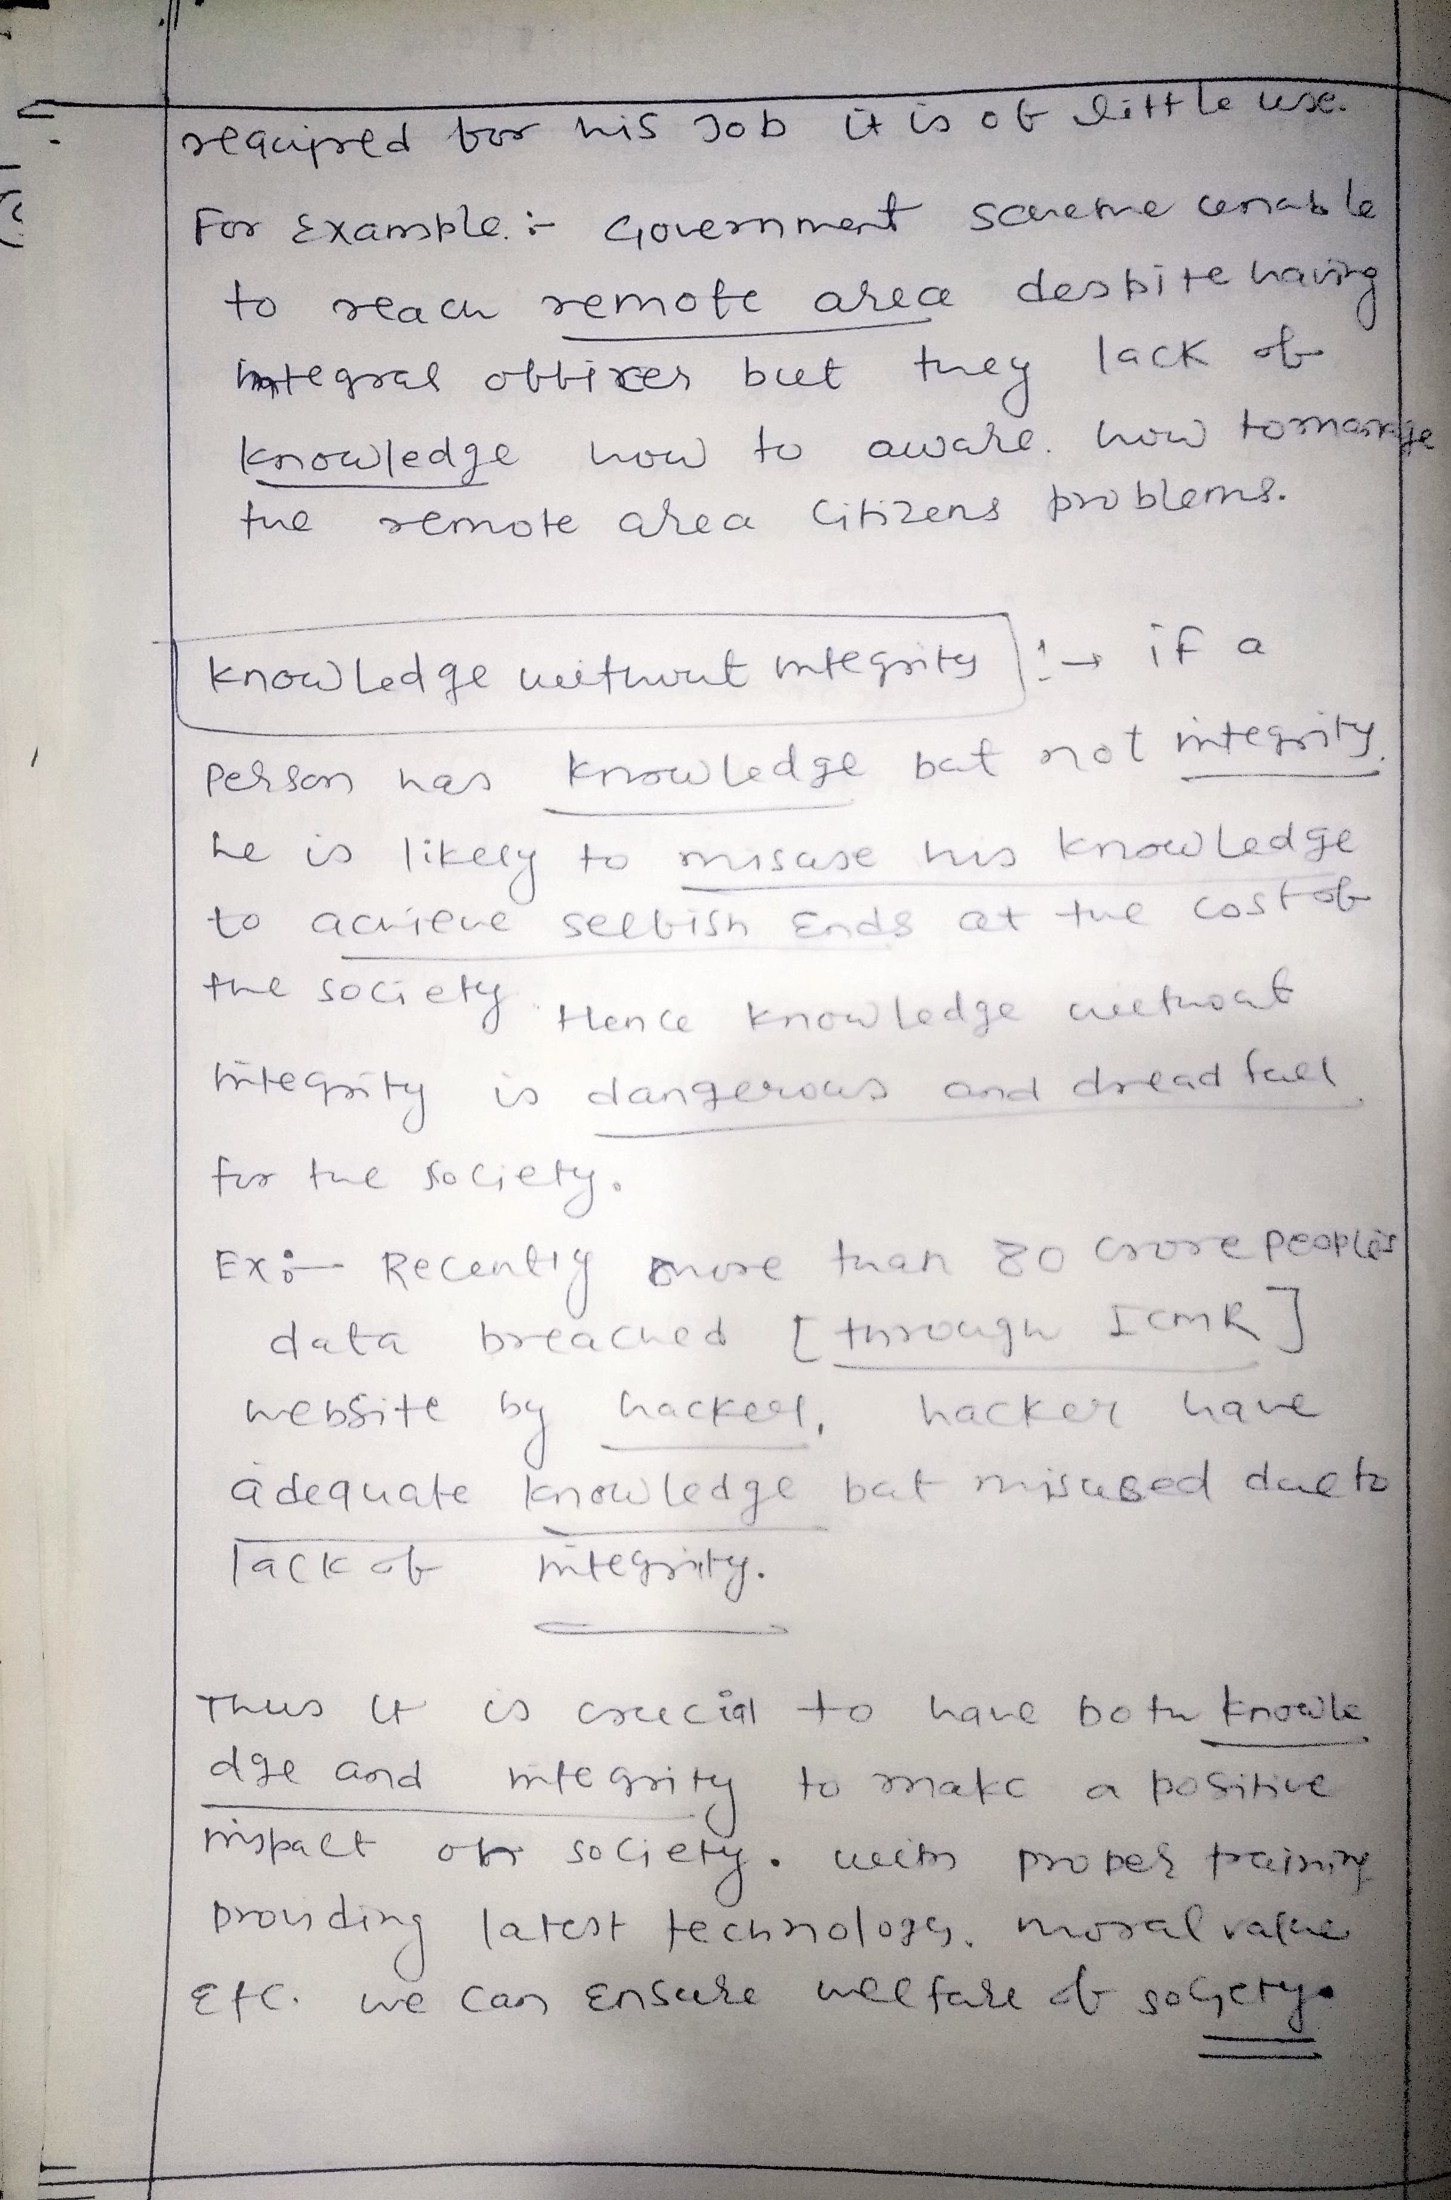 required for his Job it is of little use.
For Example :- Government scheme unable
to reach remote area despite having
integral officer but they lack of
knowledge how to aware. how to manage
the remote area Citizens problems.
knowledge without integrity :→ if a
person has knowledge but not integrity.
he is likely to misuse his knowledge
to achieve selfish Ends at the cost of
the society. Hence knowledge without
integrity is dangerous and dreadfull
for the society.
Ex:- Recently more than 80 crore people's
data breached [through ICMR]
website by hacker, hacker have
adequate knowledge but misused due to
lack of integrity.
Thus it is crucial to have both knowle
dge and integrity to make a positive
impact on society. with proper training
providing latest technology, moral value
Etc. we can Ensure welfare of society.